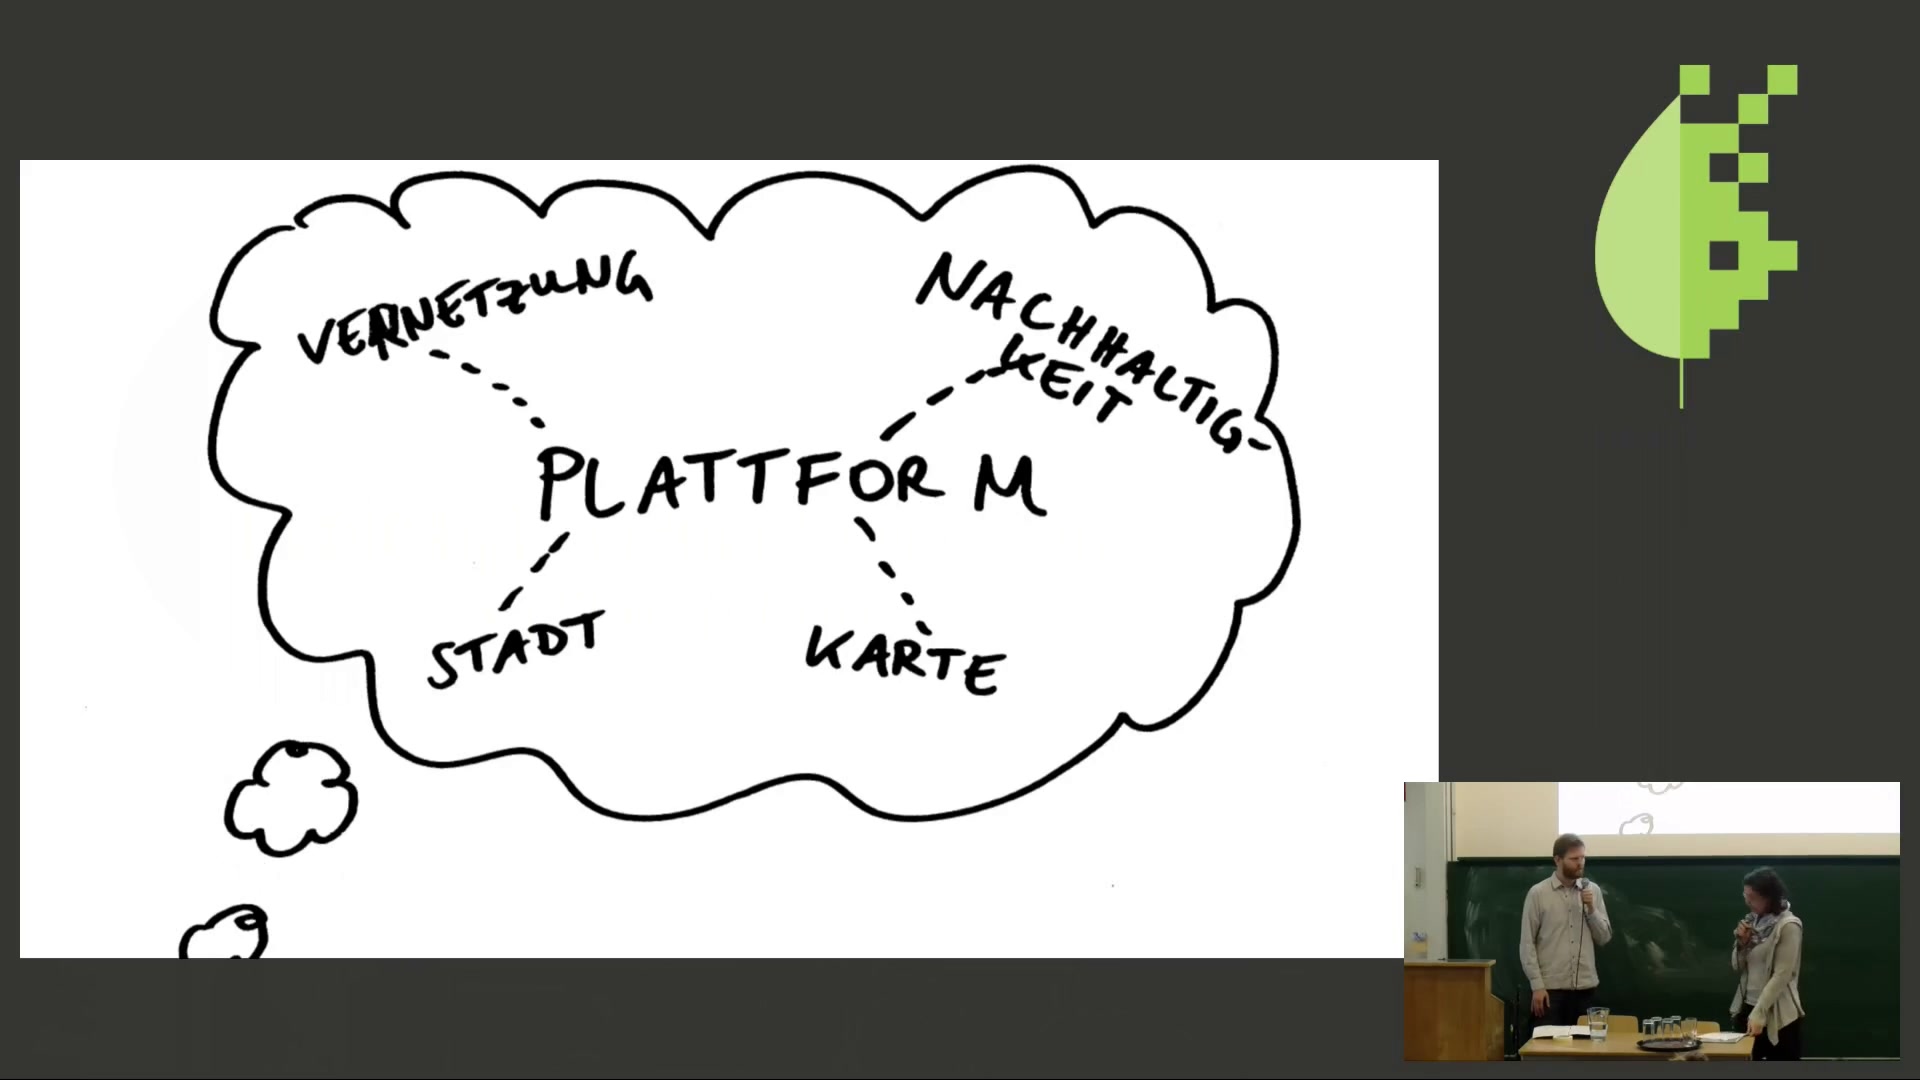 VERNETZUNG
NACHHALTIG-
KEIT
PLATTFORM
STADT
KARTE